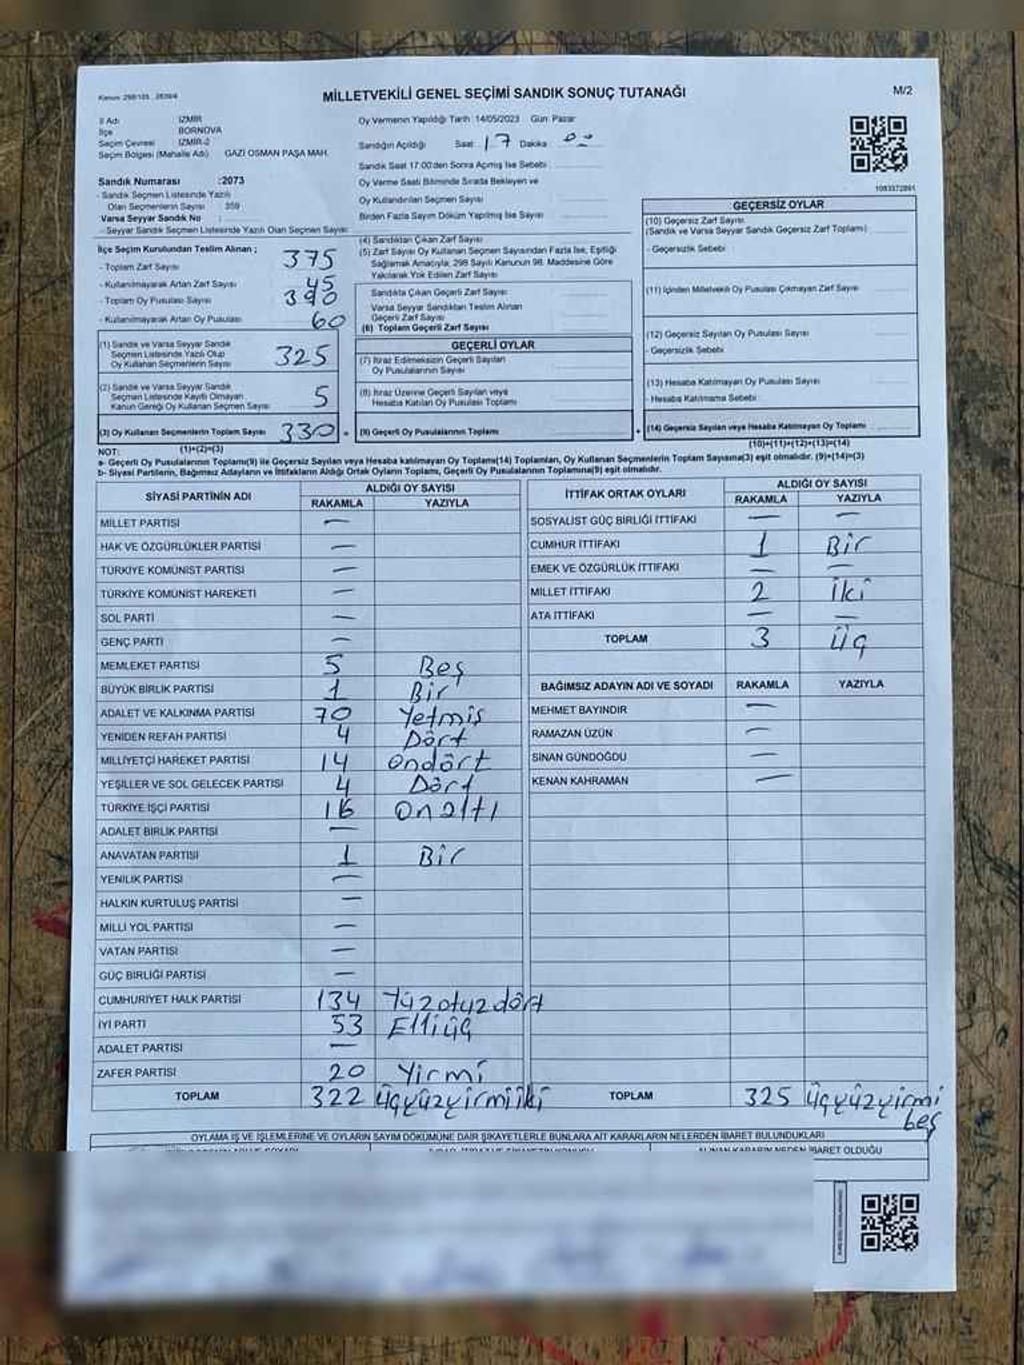 Kanun: 298/105 , 2839/4
MİLLETVEKİLİ GENEL SEÇİMİ SANDIK SONUÇ TUTANAĞI
M/2
İl Adı : İZMİR
İlçe : BORNOVA
Seçim Çevresi : İZMİR-2
Seçim Bölgesi (Mahalle Adı) : GAZİ OSMAN PAŞA MAH.
Sandık Numarası :2073
- Sandık Seçmen Listesinde Yazılı
Olan Seçmenlerin Sayısı : 359
Varsa Seyyar Sandık No :
- Seyyar Sandık Seçmen Listesinde Yazılı Olan Seçmen Sayısı:
Oy Vermenin Yapıldığı Tarih :14/05/2023 Gün: Pazar
Sandığın Açıldığı Saat: 17 Dakika 00
Sandık Saat 17:00'den Sonra Açmış İse Sebebi :
Oy Verme Saati Bitiminde Sırada Bekleyen ve
Oy Kullandırılan Seçmen Sayısı
Birden Fazla Sayım Döküm Yapılmış İse Sayısı :
1083372861
İlçe Seçim Kurulundan Teslim Alınan ;
- Toplam Zarf Sayısı 375
- Kullanılmayarak Artan Zarf Sayısı 45
- Toplam Oy Pusulası Sayısı 390
- Kullanılmayarak Artan Oy Pusulası 60
(1) Sandık ve Varsa Seyyar Sandık
Seçmen Listesinde Yazılı Olup
Oy Kullanan Seçmenlerin Sayısı 325
(2) Sandık ve Varsa Seyyar Sandık
Seçmen Listesinde Kayıtlı Olmayan
Kanun Gereği Oy Kullanan Seçmen Sayısı 5
(3) Oy Kullanan Seçmenlerin Toplam Sayısı 330 =
(4) Sandıktan Çıkan Zarf Sayısı
(5) Zarf Sayısı Oy Kullanan Seçmen Sayısından Fazla İse, Eşitliği
Sağlamak Amacıyla, 298 Sayılı Kanunun 98. Maddesine Göre
Yakılarak Yok Edilen Zarf Sayısı
Sandıkta Çıkan Geçerli Zarf Sayısı
Varsa Seyyar Sandıktan Teslim Alınan
Geçerli Zarf Sayısı
(6) Toplam Geçerli Zarf Sayısı
GEÇERLİ OYLAR
(7) İtiraz Edilmeksizin Geçerli Sayılan
Oy Pusulalarının Sayısı
(8) İtiraz Üzerine Geçerli Sayılan veya
Hesaba Katılan Oy Pusulası Toplamı
(9) Geçerli Oy Pusulalarının Toplamı +
GEÇERSİZ OYLAR
(10) Geçersiz Zarf Sayısı
(Sandık ve Varsa Seyyar Sandık Geçersiz Zarf Toplamı)
- Geçersizlik Sebebi :
(11) İçinden Milletvekili Oy Pusulası Çıkmayan Zarf Sayısı
(12) Geçersiz Sayılan Oy Pusulası Sayısı
- Geçersizlik Sebebi :
(13) Hesaba Katılmayan Oy Pusulası Sayısı
- Hesaba Katılmama Sebebi :
(14) Geçersiz Sayılan veya Hesaba Katılmayan Oy Toplamı
NOT: (1)+(2)=(3) (10)+(11)+(12)+(13)=(14)
a- Geçerli Oy Pusulalarının Toplamı(9) ile Geçersiz Sayılan veya Hesaba katılmayan Oy Pusulası(14) Toplamları, Oy Kullanan Seçmenlerin Toplam Sayısına(3) eşit olmalıdır. (9)+(14)=(3)
b- Siyasi Partilerin, Bağımsız Adayların ve İttifakların Aldığı Ortak Oyların Toplamı, Geçerli Oy Pusulalarının Toplamına(9) eşit olmalıdır.
SİYASİ PARTİNİN ADI ALDIĞI OY SAYISI
RAKAMLA YAZIYLA
MİLLET PARTİSİ —
HAK VE ÖZGÜRLÜKLER PARTİSİ —
TÜRKİYE KOMÜNİST PARTİSİ —
TÜRKİYE KOMÜNİST HAREKETİ —
SOL PARTİ —
GENÇ PARTİ —
MEMLEKET PARTİSİ 5 Beş
BÜYÜK BİRLİK PARTİSİ 1 Bir
ADALET VE KALKINMA PARTİSİ 70 Yetmiş
YENİDEN REFAH PARTİSİ 4 Dört
MİLLİYETÇİ HAREKET PARTİSİ 14 Ondört
YEŞİLLER VE SOL GELECEK PARTİSİ 4 Dört
TÜRKİYE İŞÇİ PARTİSİ 16 Onaltı
ADALET BİRLİK PARTİSİ —
ANAVATAN PARTİSİ 1 Bir
YENİLİK PARTİSİ —
HALKIN KURTULUŞ PARTİSİ —
MİLLİ YOL PARTİSİ —
VATAN PARTİSİ —
GÜÇ BİRLİĞİ PARTİSİ —
CUMHURİYET HALK PARTİSİ 134 Yüzotuzdört
İYİ PARTİ 53 Elliüç
ADALET PARTİSİ —
ZAFER PARTİSİ 20 Yirmi
TOPLAM 322 Üçyüzyirmiiki
İTTİFAK ORTAK OYLARI ALDIĞI OY SAYISI
RAKAMLA YAZIYLA
SOSYALİST GÜÇ BİRLİĞİ İTTİFAKI — —
CUMHUR İTTİFAKI 1 Bir
EMEK VE ÖZGÜRLÜK İTTİFAKI — —
MİLLET İTTİFAKI 2 İki
ATA İTTİFAKI — —
TOPLAM 3 Üç
BAĞIMSIZ ADAYIN ADI VE SOYADI RAKAMLA YAZIYLA
MEHMET BAYINDIR —
RAMAZAN ÜZÜN —
SİNAN GÜNDOĞDU —
KENAN KAHRAMAN —
TOPLAM 325 Üçyüzyirmi
beş
OYLAMA İŞ VE İŞLEMLERİNE VE OYLARIN SAYIM DÖKÜMÜNE DAİR ŞİKAYETLERLE BUNLARA AİT KARARLARIN NELERDEN İBARET BULUNDUKLARI
ALINAN KARARIN NEDEN İBARET OLDUĞU